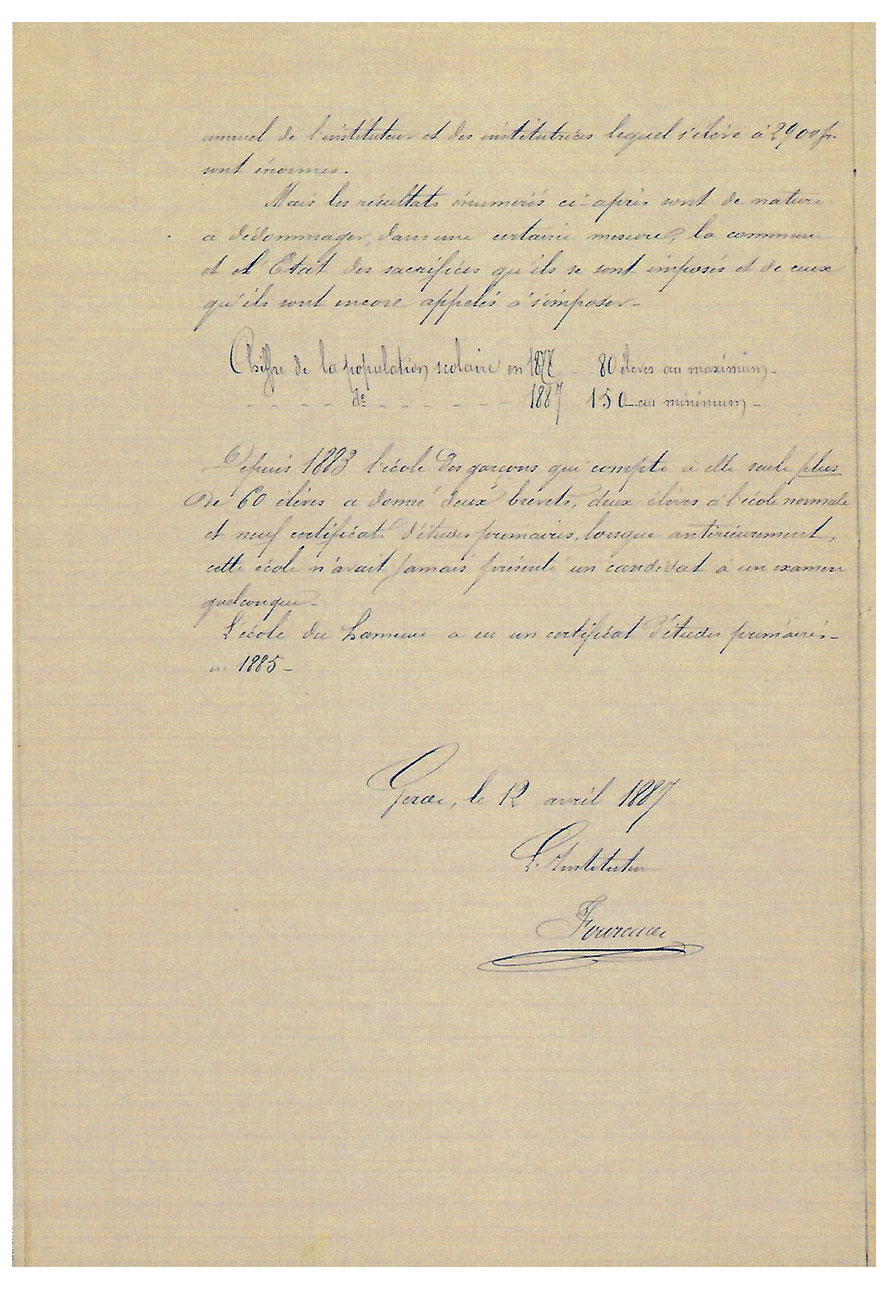 annuel de l'instituteur et des institutrices lequel s'élève à 2900 fr.
sont énormes.
Mais les résultats énumérés ci-après sont de nature
a dédommager, dans une certaine mesure, la commune
et l'Etat des sacrifices qu'ils se sont imposés et de ceux
qu'ils sont encore appelés à s'imposer.
Chiffre de la population scolaire en 1877 - 80 élèves au maximum -
- - - - dº - - - - - - - 1887 150 au minimum -
Depuis 1883 l'école des garçons qui compte à elle seule plus
de 60 élèves a donné deux brevets, deux élèves à l'école normale
et neuf certificats d'études primaires, lorsque antérieurement,
cette école n'avait jamais présenté un candidat à un examen
quelconque.
L'école du hameau a eu un certificat d'études primaires -
en 1885 -
le 12 avril 1887
L'Instituteur